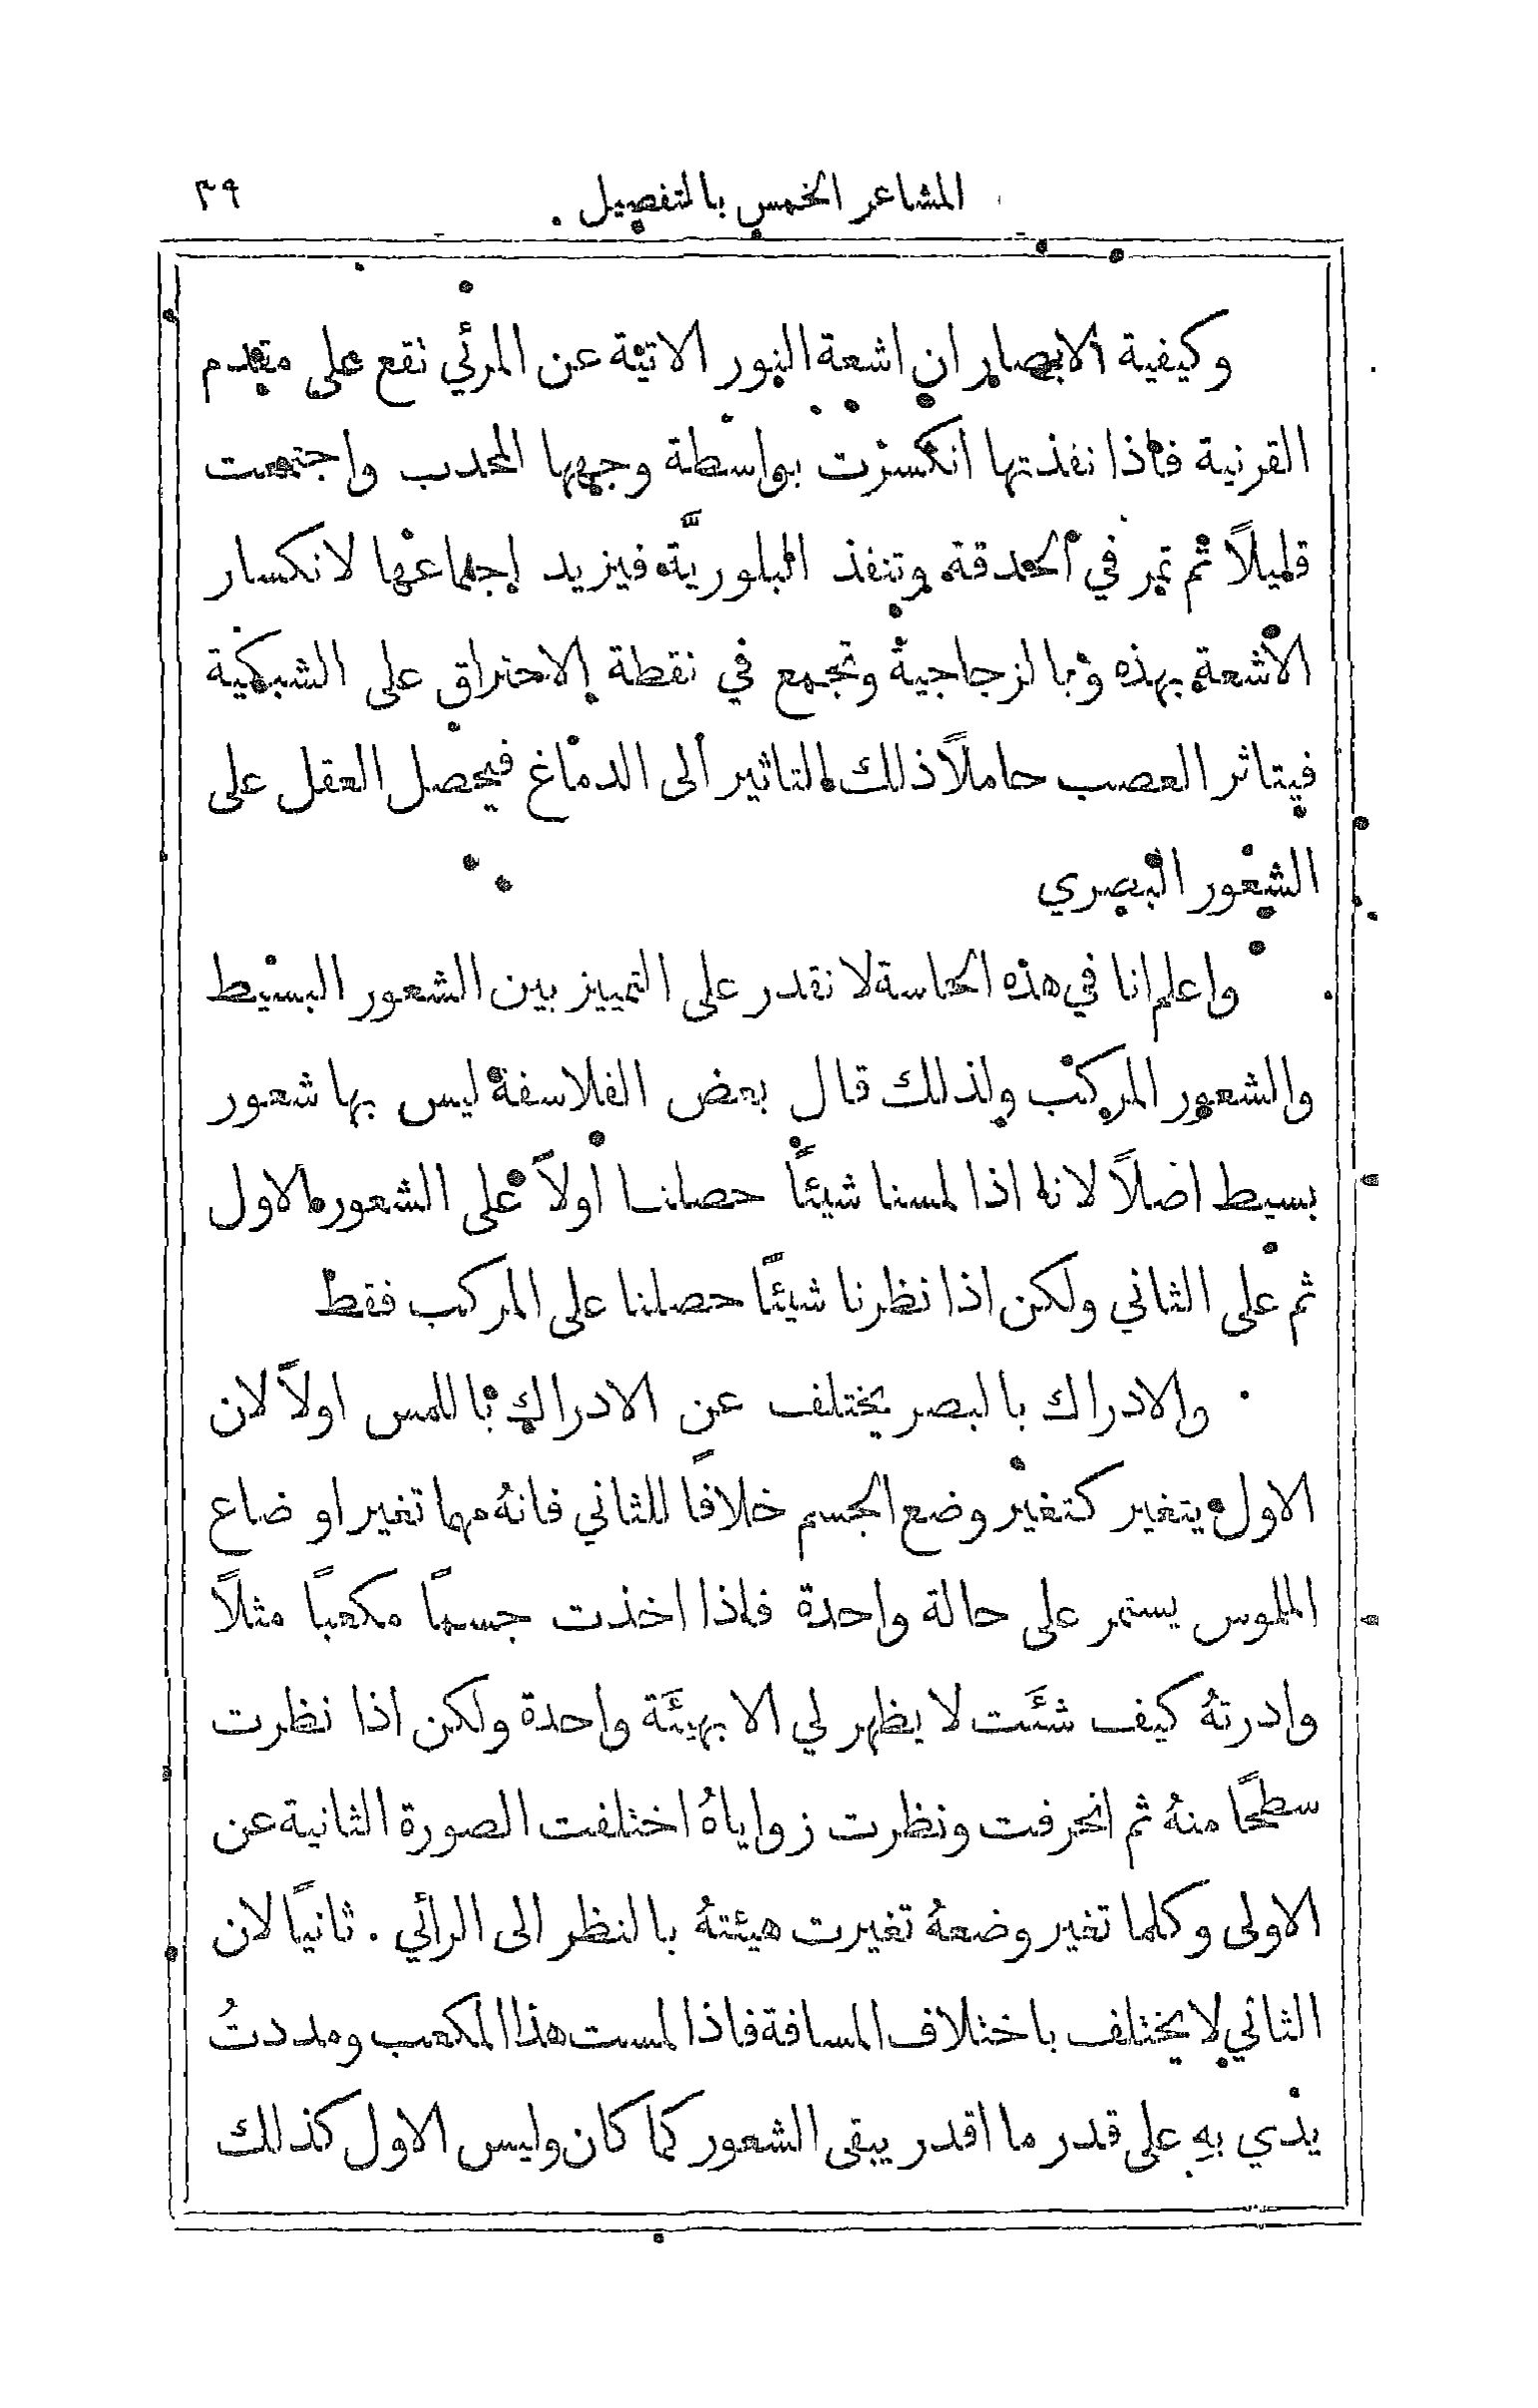 المشاعر الخمس بالتفصيل . ٣٩
وكيفية الابصار ان اشعة النور الاتية عن المرئي تقع على مقدم
القرنية فاذا نفذتها انكسرت بواسطة وجهها المحدب واجتمعت
قليلاً ثم تمر في الحدقة وتنفذ البلوريَّة فيزيد اجتماعها لانكسار
الاشعة بهذه وبالزجاجية وتجمع في نقطة الاحتراق على الشبكية
فيتاثر العصب حاملاً ذلك التاثير الى الدماغ فيحصل العقل على
الشعور البصري
واعلم انا في هذه الحاسة لا نقدر على التمييز بين الشعور البسيط
والشعور المركب ولذلك قال بعض الفلاسفة ليس بها شعور
بسيط اصلاً لانا اذا لمسنا شيئاً حصلنا اولاً على الشعور الاول
ثم على الثاني ولكن اذا نظرنا شيئًا حصلنا على المركب فقط
والادراك بالبصر يختلف عن الادراك باللمس اولاً لان
الاول يتغير كتغير وضع الجسم خلافًا للثاني فانهُ مهما تغير اوضاع
الملموس يستمر على حالة واحدة فاذا اخذت جسمًا مكعبًا مثلاً
وادرتهُ كيف شئَت لا يظهر لي الا بهيئَة واحدة ولكن اذا نظرت
سطحًا منهُ ثم انحرفت ونظرت زواياهُ اختلفت الصورة الثانية عن
الاولى وكلما تغير وضعهُ تغيرت هيئتهُ بالنظر الى الرائي . ثانيًا لان
الثاني لا يختلف باختلاف المسافة فاذا لمست هذا المكعب ومددتُ
يدي بهِ على قدر ما اقدر يبقى الشعور كما كان وليس الاول كذلك